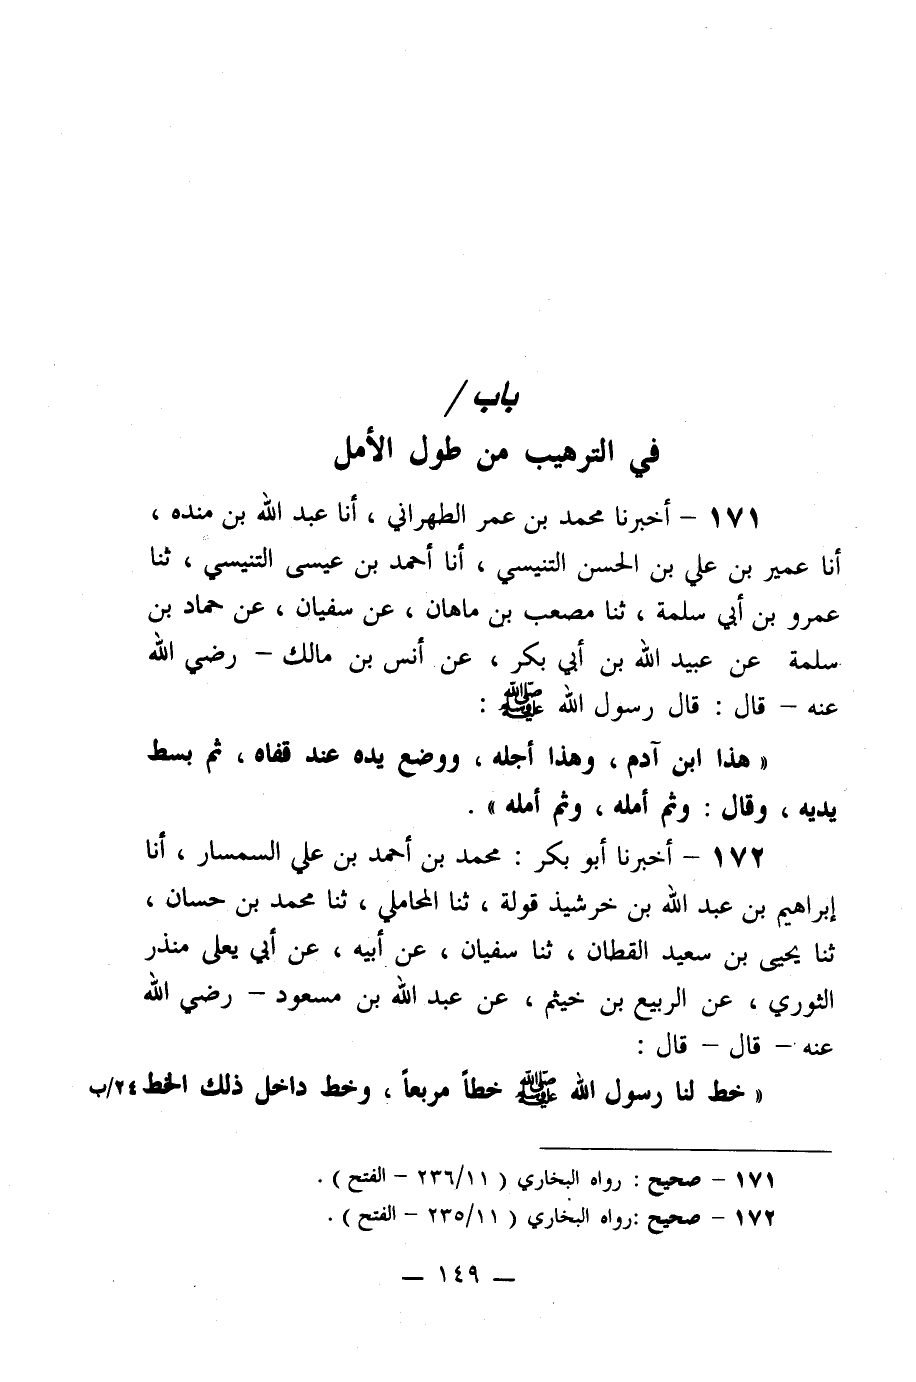 باب /
في الترهيب من طول الأمل
١٧١ – أخبرنا محمد بن عمر الطهراني ، أنا عبد الله بن منده ،
أنا عمير بن علي بن الحسن التنيسي ، أنا أحمد بن عيسى التنيسي ، ثنا
عمرو بن أبي سلمة ، ثنا مصعب بن ماهان ، عن سفيان ، عن حماد بن
سلمة عن عبيد الله بن أبي بكر ، عن أنس بن مالك – رضي الله
عنه – قال : قال رسول الله ﷺ :
« هذا ابن آدم ، وهذا أجله ، ووضع يده عند قفاه ، ثم بسط
يديه ، وقال : وثم أمله ، وثم أمله » .
١٧٢ – أخبرنا أبو بكر : محمد بن أحمد بن علي السمسار ، أنا
إبراهيم بن عبد الله بن خرشيذ قولة ، ثنا المحاملي ، ثنا محمد بن حسان ،
ثنا يحيى بن سعيد القطان ، ثنا سفيان ، عن أبيه ، عن أبي يعلى منذر
الثوري ، عن الربيع بن خيثم ، عن عبد الله بن مسعود – رضي الله
عنه – قال – قال :
« خط لنا رسول الله ﷺ خطاً مربعاً ، وخط داخل ذلك الخط ٢٤/ب
١٧١ – صحيح : رواه البخاري ( ٢٣٦/١١ – الفتح ) .
١٧٢ – صحيح :رواه البخاري ( ٢٣٥/١١ – الفتح ) .
– ١٤٩ –